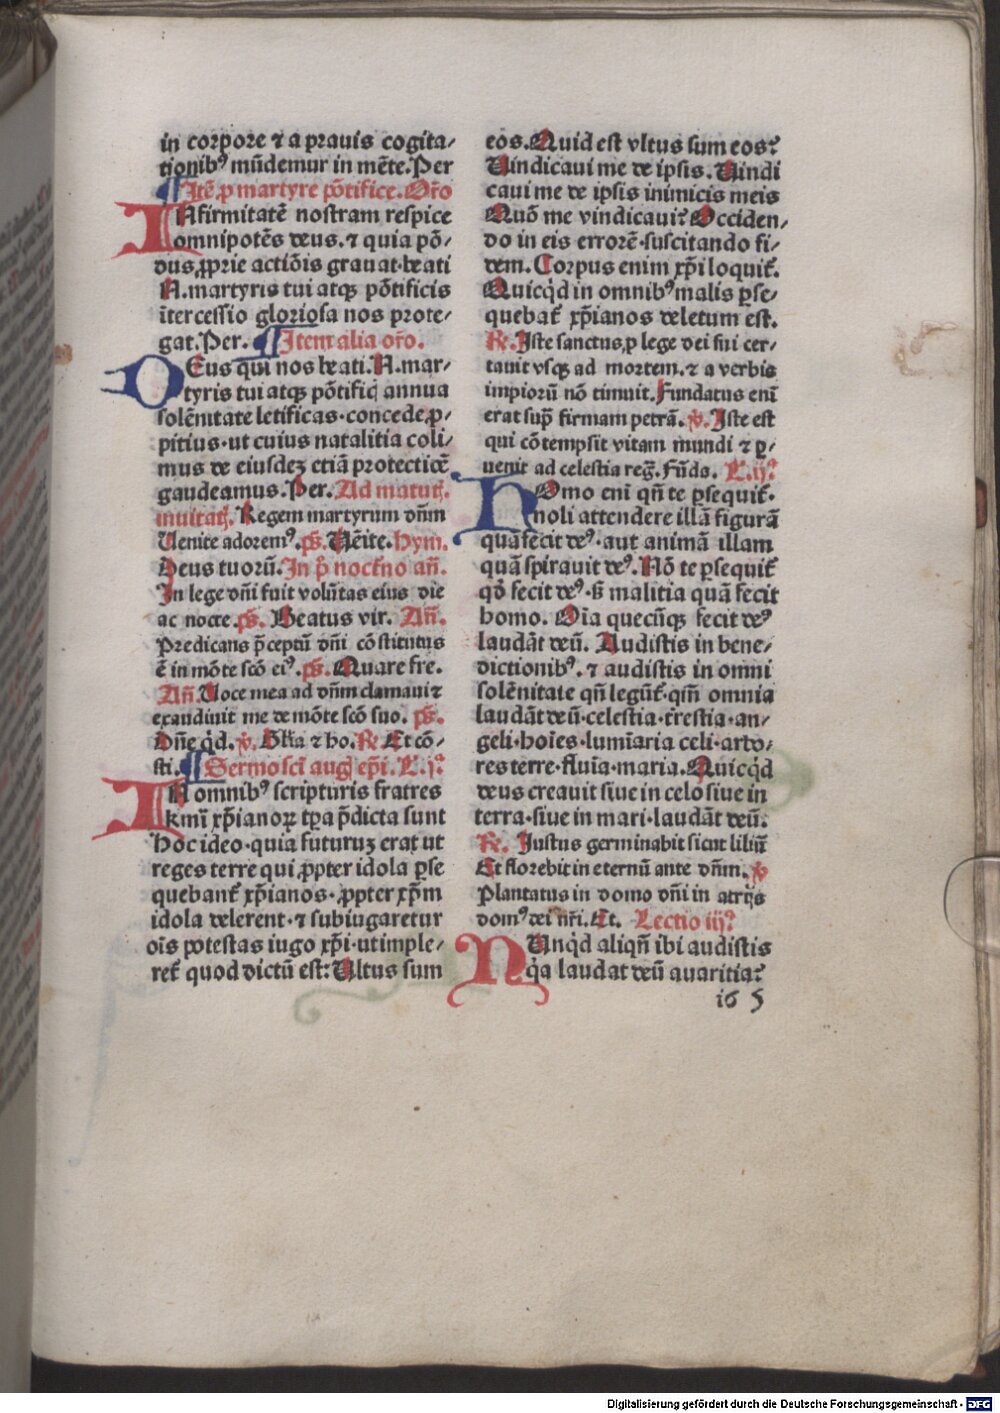 in corpore ⁊ a prauis cogita⸗
tionibꝰ mūdemur in mēte. Per
¶ Itē ꝓ martyre pōtifice. Oro
INfirmitatē nostram respice
omnipotēs deus. ⁊ quia pō⸗
dus ꝓprie actiōis grauat·beati
N. martyris tui atqꝫ pōtificis
ītercessio gloriosa nos prote⸗
gat. Per. ¶ Item alia oro.
DEus qui nos beati. N. mar⸗
tyris tui atqꝫ pōtific annua
solēnitate letificas·concede ꝓ⸗
pitius·ut cuius natalitia coli⸗
mus de eiusdeꝫ etiā protectiōe
gaudeamus. Per. Ad matut.
inuitat. Regem martyrum dn̄m
Uenite adoremꝰ. ps̄. Uēite. Hym.
Deus tuorū. In p̄ noct̄no an̄.
In lege dn̄i fuit volūtas eius die
ac nocte. ps̄. Beatus vir. An̄.
Predicans p̄ceptū dn̄i cōstitutus
ē in mōte scō eiꝰ. ps̄. Quare fre.
An̄. Uoce mea ad dn̄m clamaui ⁊
exaudiuit me de mōte scō suo. ps̄.
Dn̄e qͥd. v̄. Glīa ⁊ ho. R̄ Et cō⸗
sti. ¶ Sermo sci aug epi. L. j.ͣ
IN omnibꝰ scripturis fratres
kmi xp̄ianoꝝ tpa p̄dicta sunt
Hoc ideo·quia futuruꝫ erat ut
reges terre qui ꝓpter idola ꝑse
quebant̄ xp̄ianos·ꝓpter xp̄m
idola delerent·⁊ subiugaretur
oīs potestas iugo xp̄i·ut imple⸗
ret̄ quod dictū est: Ultus sum
eos. Quid est vltus sum eos?
Uindicaui me de ipsis. Uindi
caui me de ipsis inimicis meis
Quō me vindicaui? Occiden⸗
do in eis errorē·suscitando fi⸗
dem. Corpus enim xp̄i loquit̄.
Quicqͥd in omnibꝰ malis ꝑse⸗
quebat̄ xp̄ianos deletum est.
R̄. Iste sanctus ꝓ lege dei sui cer⸗
tauit vsqꝫ ad mortem. ⁊ a verbis
impiorū nō timuit. Fundatus enī
erat sup̄ firmam petrā. v̄. Iste est
qui cōtempsit vitam mundi ⁊ ꝑ⸗
uenit ad celestia reg̃. Fūda. L. ij.ͣ
HOmo enī qn̄ te ꝑsequit̄·
noli attendere illā figurā
quā fecit deꝰ·aut animā illam
quā spirauit deꝰ. Nō te ꝑsequit̄
qd̓ fecit deꝰ·sꝫ malitia quā fecit
homo. Oīa quecūqꝫ fecit deꝰ
laudāt deū. Audistis in bene⸗
dictionibꝰ·⁊ audistis in omni
solēnitate qn̄ legūt̄·qm̄ omnia
laudāt deū·celestia·t̄restia·an⸗
geli·hoīes·lumīaria celi·arbo⸗
res terre·fluīa·maria. Quicqͥd
deus creauit siue in celo siue in
terra·siue in mari·laudāt deū.
R̄. Iustus germinabit sicut liliū
Et florebit in eternū ante dn̄m. v̄
Plantatus in domo dn̄i in atrijs
domꝰ dei nr̄i. Et. Lectio iij.ͣ
NUnqͥd aliqn̄ ibi audistis
qͥa laudat deū auaritia?
i6 5
Digitalisierung gefördert durch die Deutsche Forschungsgemeinschaft - DFG